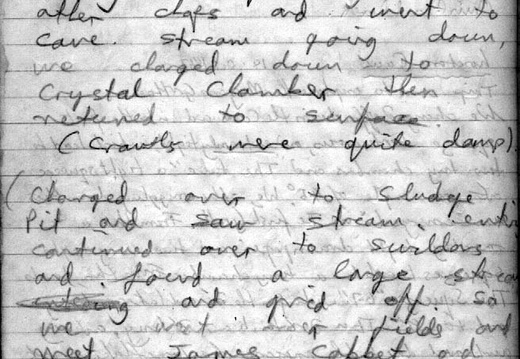 after chaps and went to
cave. stream going down,
we charged down to
Crystal Chamber then
returned to surface
(Crawls were quite damp).
(Charged over to Sludge
Pit and saw stream.
continued over to Swildons
and found a large stream
and pried off. so
we over fields and
meet James Cobbet and